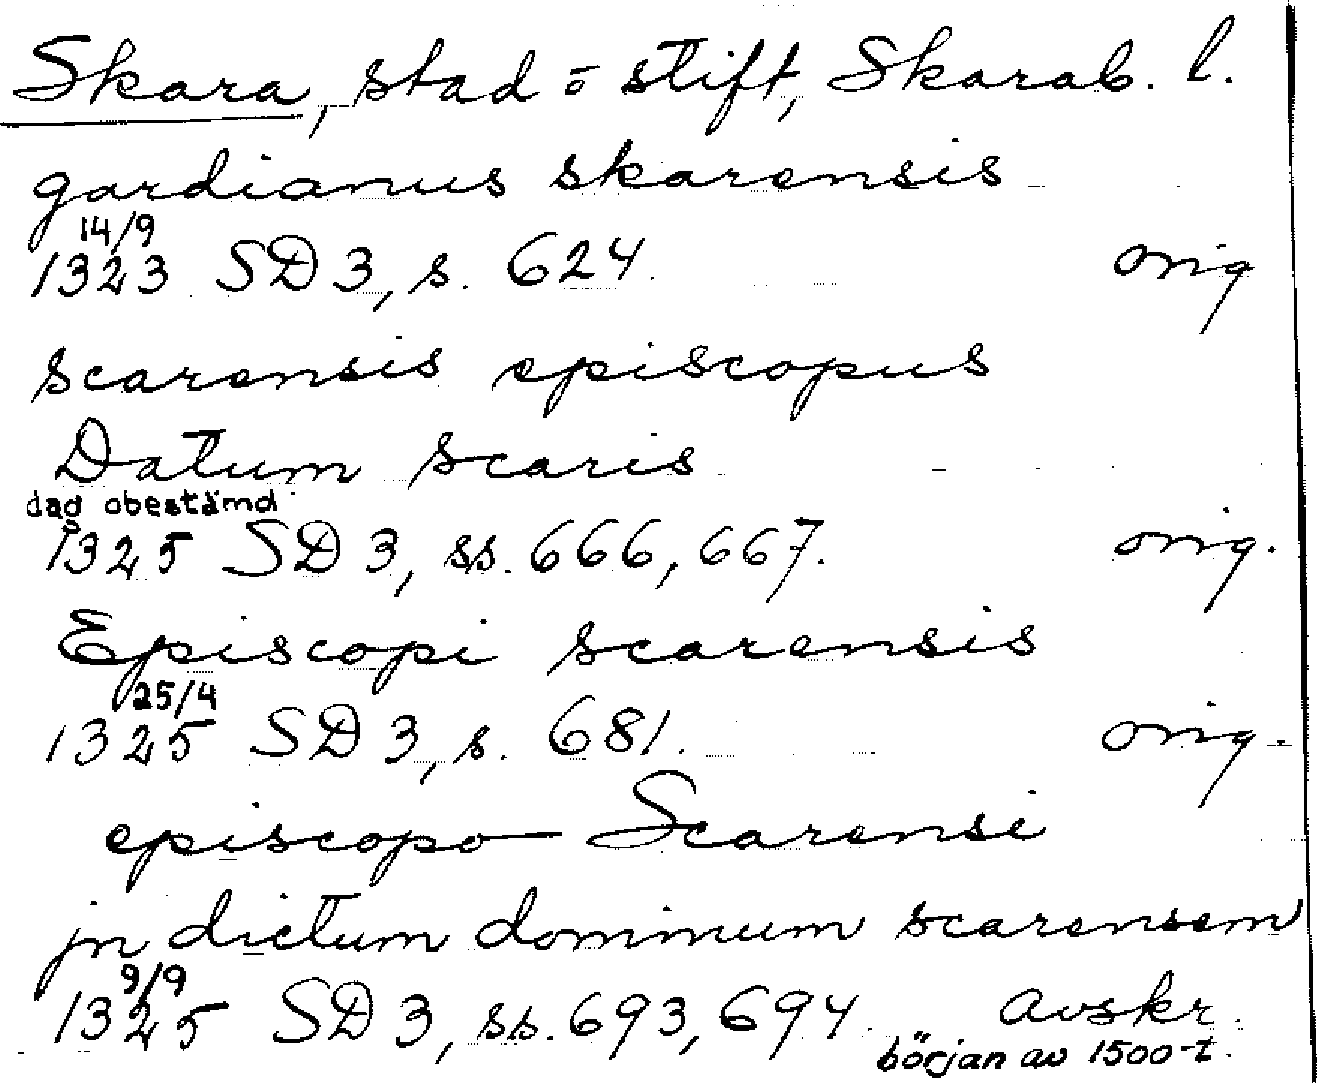 Skara, stad o stift, Skarab. l.
gardianus skarensis
14/9
1323 SD 3, s. 624. orig
scarensis episcopus
Datum scaris
dag obestämd
1325 SD 3, ss. 666, 667. orig.
Episcopi scarensis
25/4
1325 SD 3, s. 681. orig.
episcopo — Scarensi
jn dictum dominum scarensem
9/9
1325 SD 3, ss. 693, 694. Avskr.
början av 1500-t.